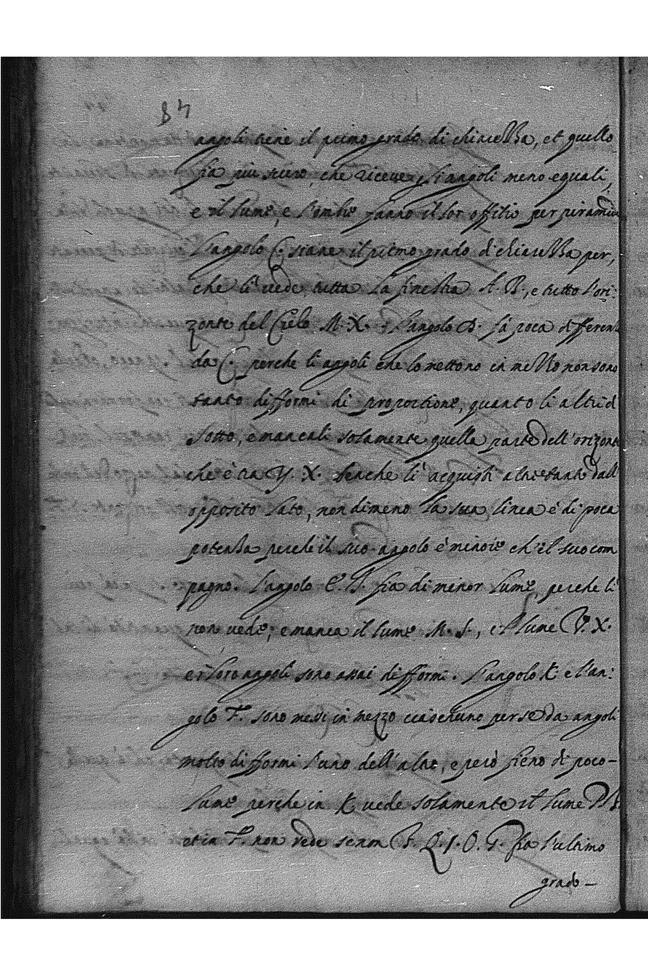 87
angoli tiene il primo grado di chiarezza, et quello
fia piu scuro, che riceve gl'angoli meno equali,
e il lume, e l'ombre fanno il lor offitio per piramidi
l'angolo C. tiene il primo grado di chiarezza per,
che li vede tutta la finestra A. B., e tutto l'ori:
zonte del Cielo M. X. l'angolo D. fa poca differen
da C. perche li angoli che lo mettono in mezzo non sono
tanto difformi di proportione, quanto li altri d
sotto, e mancali solamente quella parte dell'orizonte
che è tra Y. X. benche li acquisti altretanto dall
opposito lato, nondimeno la sua linea è di poca
potenza perche il suo angolo è minore ch'el suo com
pagno. l'angolo E. fia di minor lume, perche li
non vede, e manca il lume M. S., e il lume V. X.
e i loro angoli sono assai difformi. l'angolo K e l'an:
golo F. sono messi in mezzo ciascheuno per se da angoli
molto difformi l'uno dell'altro, e però fieno di poco-
lume perche in K vede solamente il lume
et in F. non vede senon T. Q. fia l'ultimo
grado-